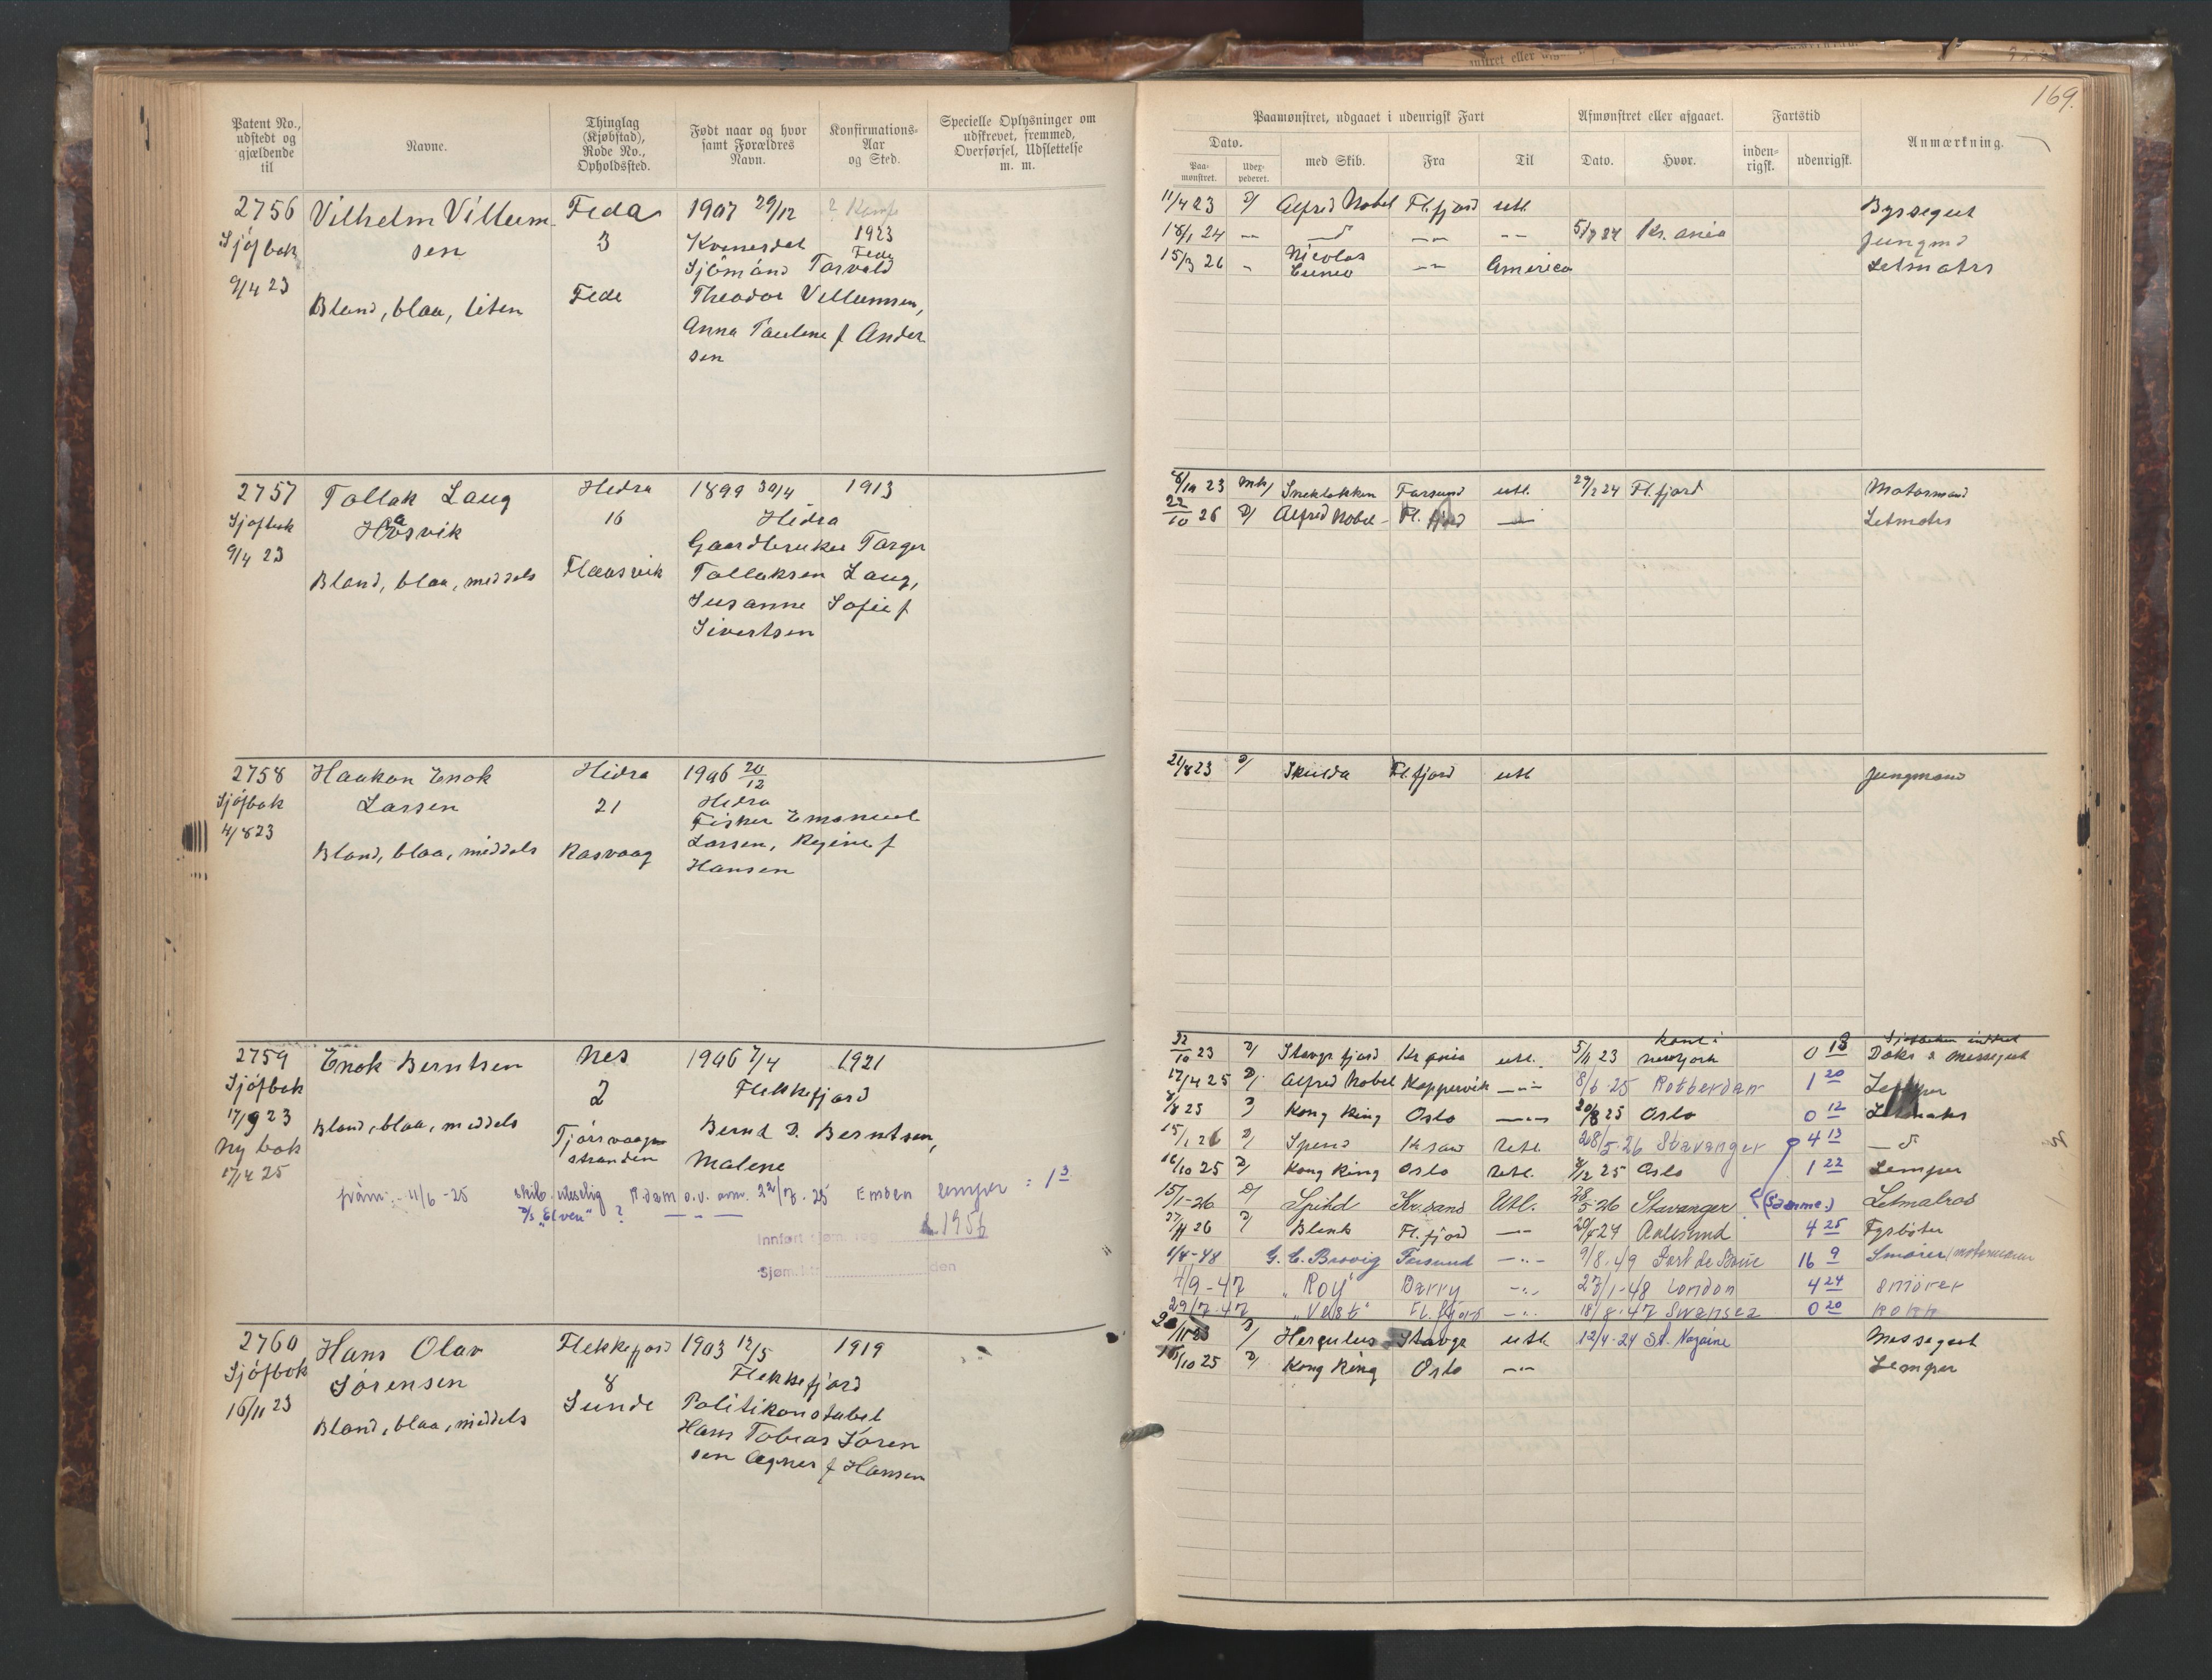 169.
Patent No., udstedt og gjældende til
Navne.
Thinglag (Kjøbstad), Rode No., Opholdssted.
Født naar og hvor samt Forældres Navn.
Konfirmations-Aar og Sted.
Specielle Oplysninger om udskrevet, fremmed, Overførsel, Udslettelse m. m.
Paamønstret, udgaaet i udenrigsk Fart
Afmønstret eller afgaaet.
Fartstid
Anmærkning.
Dato.
Paa-mønstret.
Udex-pederet.
med Skib.
Fra
Til
Dato.
Hvor.
inden-rigsk.
udenrigsk.
2756 Vilhelm Villum- Feda 1907 29/12 ? Konf
Sjøfbok sen 3 Kvinesdal 1923 Feda
9/4 23 Sjömand Torvald
Bland, blaa, liten Fede Theodor Villumsen,
Anna Pauline f Ander
sen
11/4 23 D/ Alfred Nobel Fl.fjord utl. Byssegut
18/1 24 Kr.ania Jungmd
15/3 26 Nicolas Cuneo America Letmatrs
2757 Tollak Laug Hidra 1899 30/4 1913
Sjøfbok Haasvik 16 Hidra
9/4 23 Gaardbruker Torger
Bland, blaa, middels Flaasvik Tollaksen Laug,
Susanne Sofie f
Sivertsen
8/10 23 mk/ Sneklokken Farsund utl. 29/2 24 Fl.fjord Motormand
22/10 26 D/ Alfred Nobel Fl. fjord Letmatrs
2758 Haakon Enok Hidra 1906 20/12
Sjøfbok Larsen 21 Hidra
4/8 23 Fisker Emanuel
Bland, blaa, middels Rasvaag Larsen, Regine f
Hansen
21/8 23 D/ Skulda Fl.fjord utl Jungmand
2759 Enok Berntsen Nes 1906 7/4 1921
Sjøfbok 2 Flekkefjord
17/9 23 Bland, blaa, middels Tjørsvaag- Bernt D. Berntsen,
Ny bok stranden Malene
17/4 25
fràm: 4/6-25 skib. uleselig R.dam o.v. avm. 22/7.25 Emden lemper = 1 3
D/s "Elven" ?
1956
Innført i
Sjøm.
den
/10 23 D/ Stavgr.fjord Kr.ania utl. 5/11 23 Newyork 0 13 Dæks & Messegut
17/4 25 D/ Alfred Nobel Koppervik 8/6-25 Rotterdam 1 20
8/8 25 Kong Ring Oslo 20/8 25 Oslo 0 12 Letmatrs
15/1 26 D/ Spind Krsand Utl. 28/5-26 Stavanger 4 13
16/10 25 D/ Kong Ring Oslo Utl. /12 25 Oslo 1 22 Lemper
15/1-26 D/ Spind Kr.sand Utl. 28/5-26 Stavanger (Samme.) Letmatros
Blink Fl.fjord Aalesund 4 25 Fyrbøter
1/4-48 G. C. Brøvig Farsund 9/8.49 Port de Bouc 16 9 Smører/motormann
4/9-47 "Roy" Barry 27/1-48 London 4 24 smører
29/7-47 "Vest" Fl.fjord 18/8-47 Swansea 0 20 Kokk
2760 Hans Olav Flekkefjord 1903 12/5 1919
Sjøfbok Sørensen 8 Flekkefjord
16/11 23 Sunde Politikonstabel
Bland, blaa, middels Hans Tobias Søren
sen Agnes f Hansen
/11 23 D/ Herculus Stavgr utl. 12/4-24 St. Nazaire Messegut
/10 25 D/ Kong Ring Oslo Lemper